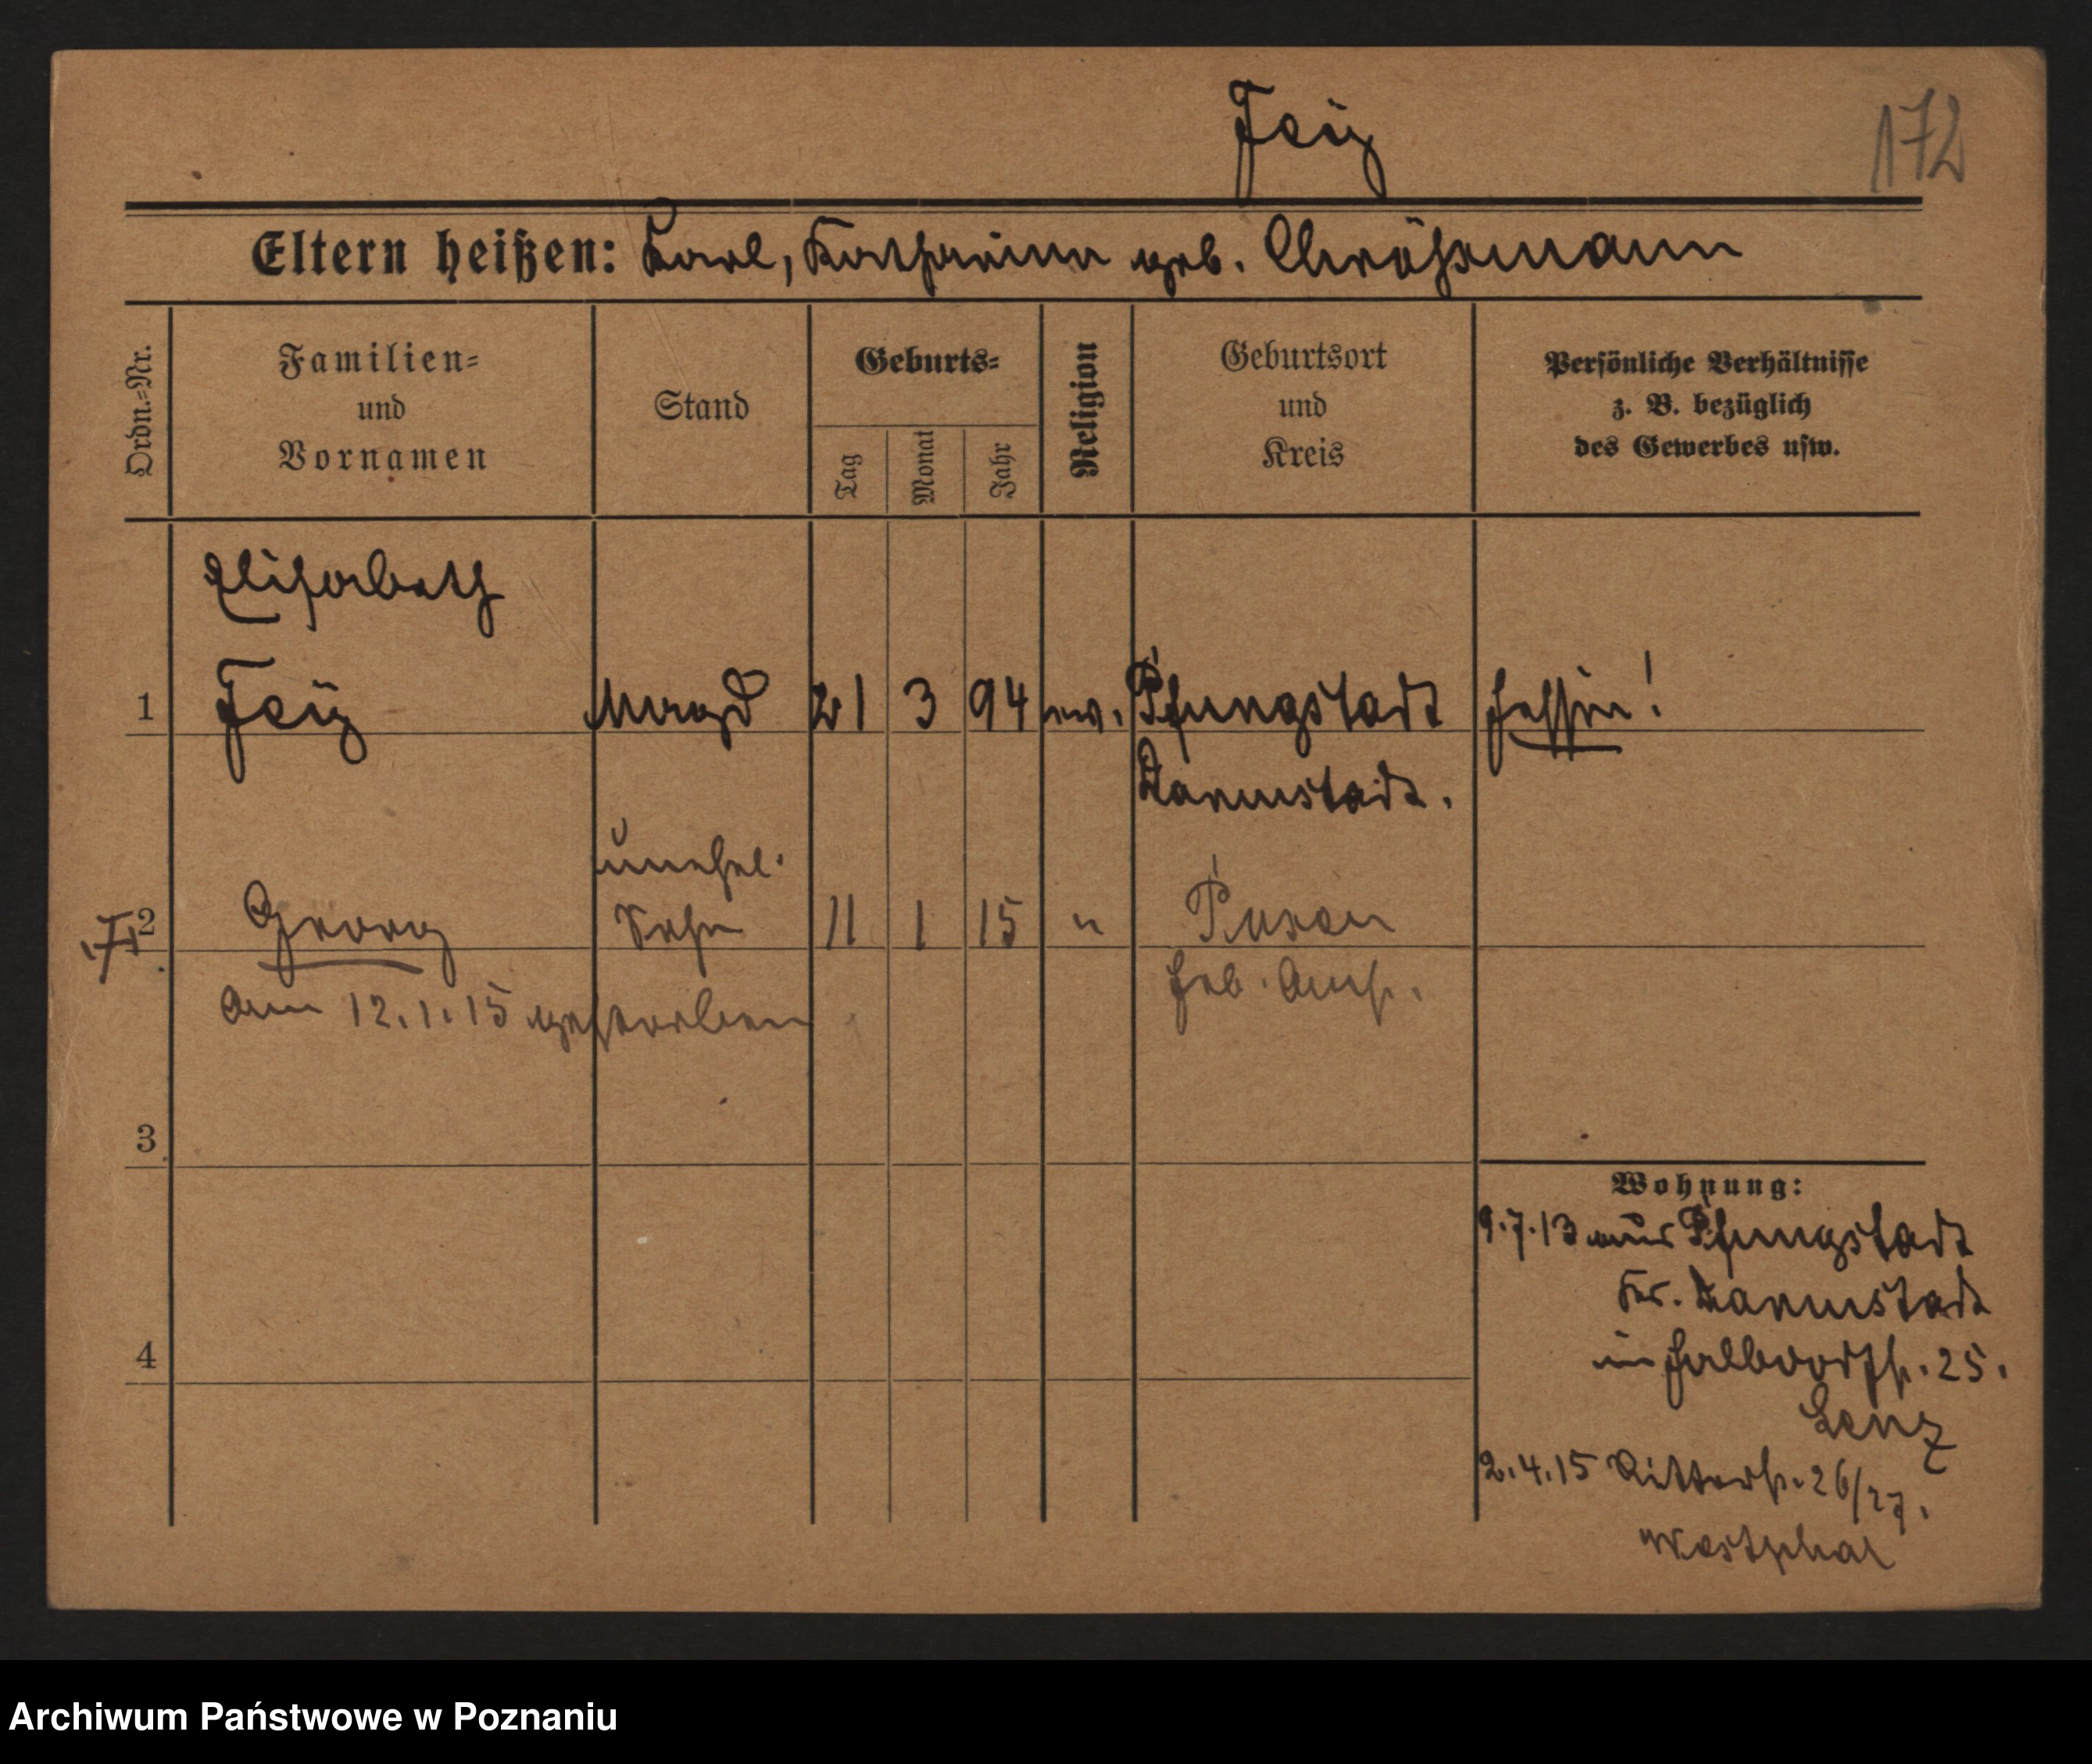 Feig
172
Eltern heißen: Karl, Katharina geb. Chrößmann
Ordn.-Nr.
Familien-
und
Vornamen
Stand
Geburts-
Tag
Monat
Jahr
Religion
Geburtsort
und
Kreis
Persönliche Verhältnisse
z. B. bezüglich
des Gewerbes usw.
Elisabeth
1 Feig Magd 21 3 94 ev. Pfungstadt Hessin!
Darmstadt.
unehel.
2 Georg Sohn 11 1 15 " Posen
am 12.1.15 gestorben Heb. Anst.
3
Wohnung:
9.7.13 aus Pfungstadt
Kr. Darmstadt
in Halbdorfstr. 25.
4
Lenz
2.4.15 Ritterstr. 26/27.
Westphal
Archiwum Państwowe w Poznaniu